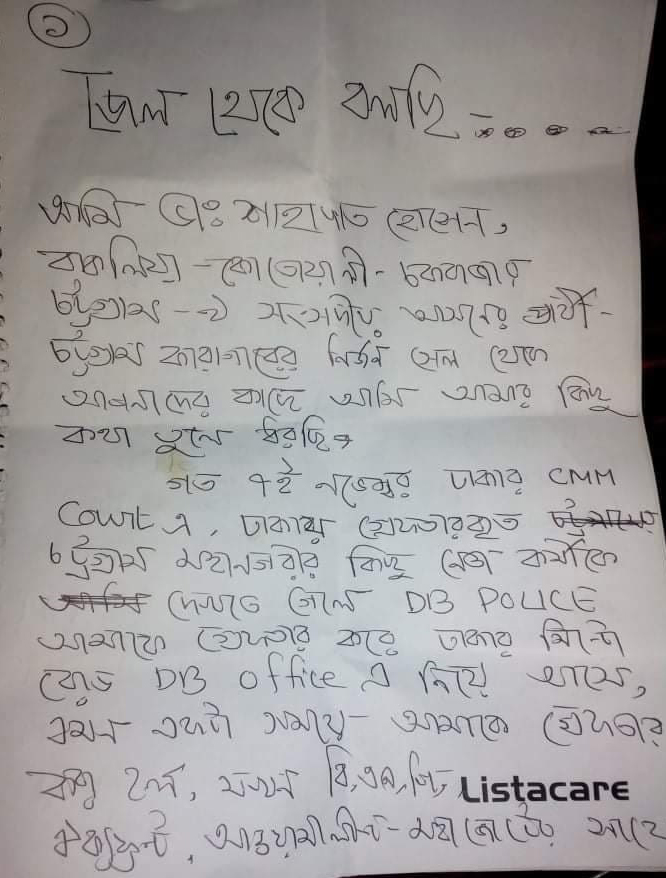 ১
জেল থেকে বলছি -....
আমি ডাঃ শাহাদাত হোসেন,
বাকলিয়া - কোতোয়ালী - চকবাজার
চট্টগ্রাম - ৯ সংসদীয় আসনের প্রার্থী -
চট্টগ্রাম কারাগারের নির্জন সেল থেকে
আপনাদের কাছে আমি আমার কিছু
কথা তুলে ধরছি।
গত ৭ই নভেম্বর ঢাকার CMM
Court এ, ঢাকায় গ্রেফতারকৃত
চট্টগ্রাম মহানগরীর কিছু নেতা কর্মীকে
দেখতে গেলে DB POLICE
আমাকে গ্রেফতার করে ঢাকার মিন্টো
রোড DB office এ নিয়ে আসে,
এমন একটা সময়ে - আমাকে গ্রেফতার
করা হল, যখন বি,এন,পি, Listacare
ঐক্যফ্রন্ট, আওয়ামীলীগ - মহাজোটের সাথে